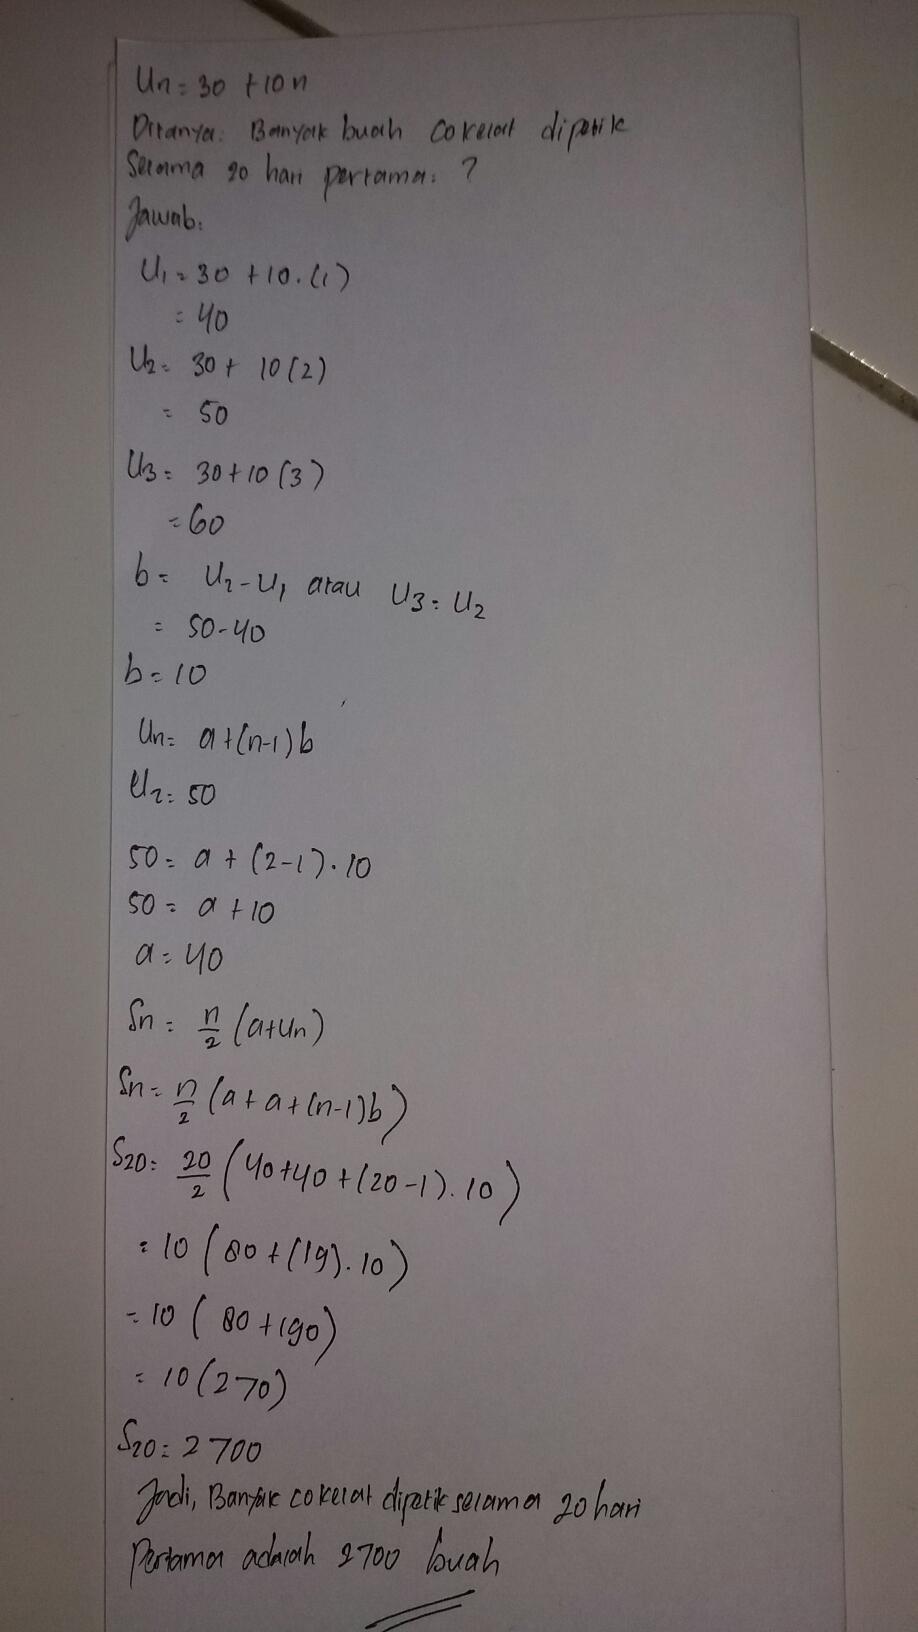 Un = 30 + 10n
Ditanya: Banyak buah cokelat dipetik
Selama 20 hari pertama: ?
Jawab:
U1 = 30 + 10.(1)
= 40
U2 = 30 + 10(2)
= 50
U3 = 30 + 10(3)
= 60
b = U2 - U1 atau U3 - U2
= 50 - 40
b = 10
Un = a + (n-1)b
U2 = 50
50 = a + (2-1).10
50 = a + 10
a = 40
Sn = n/2 (a + Un)
Sn = n/2 (a + a + (n-1)b)
S20 = 20/2 (40 + 40 + (20-1).10)
= 10 (80 + (19).10)
= 10 (80 + 190)
= 10 (270)
S20 = 2700
Jadi, Banyak cokelat dipetik selama 20 hari
Pertama adalah 2700 buah